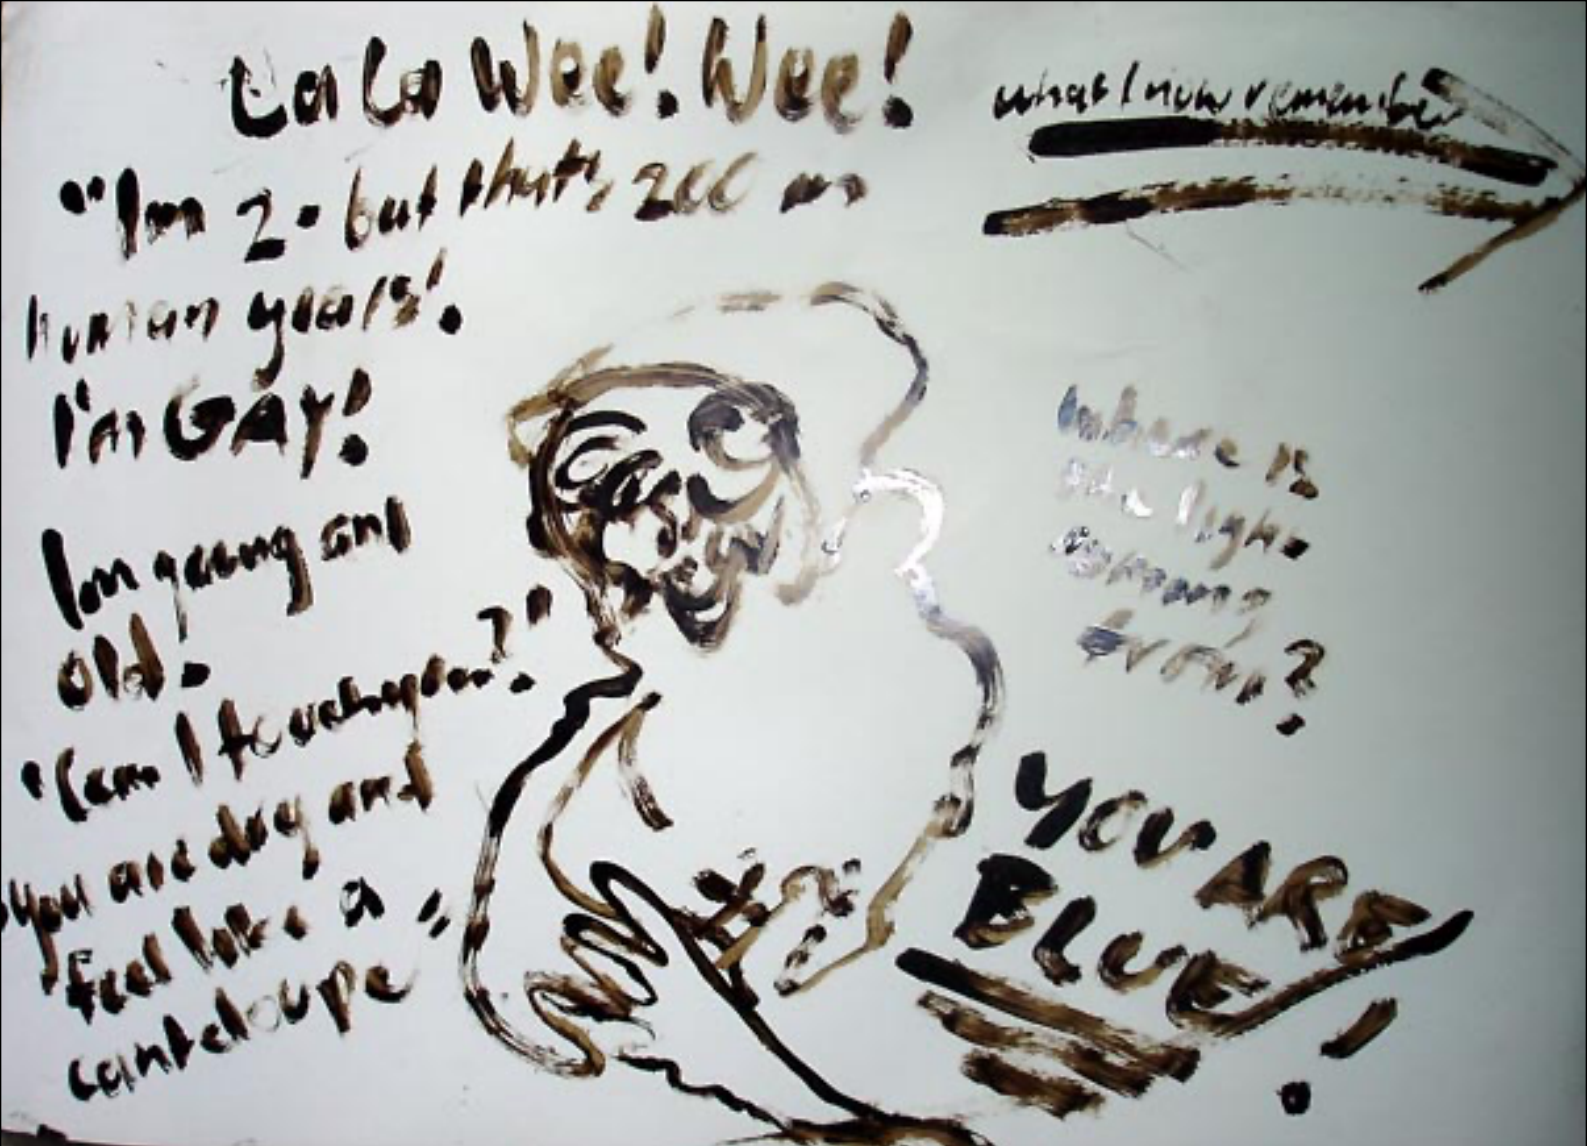 La La Wee! Wee!
what I now remember
"Im 2 - but that's 200 in
human years!
I'm GAY!
Im young and
old.
"Can I touch you?"
"You are dog and
feel like a
canteloupe"
Where is
the light
coming
from?
YOU ARE
BLUE!